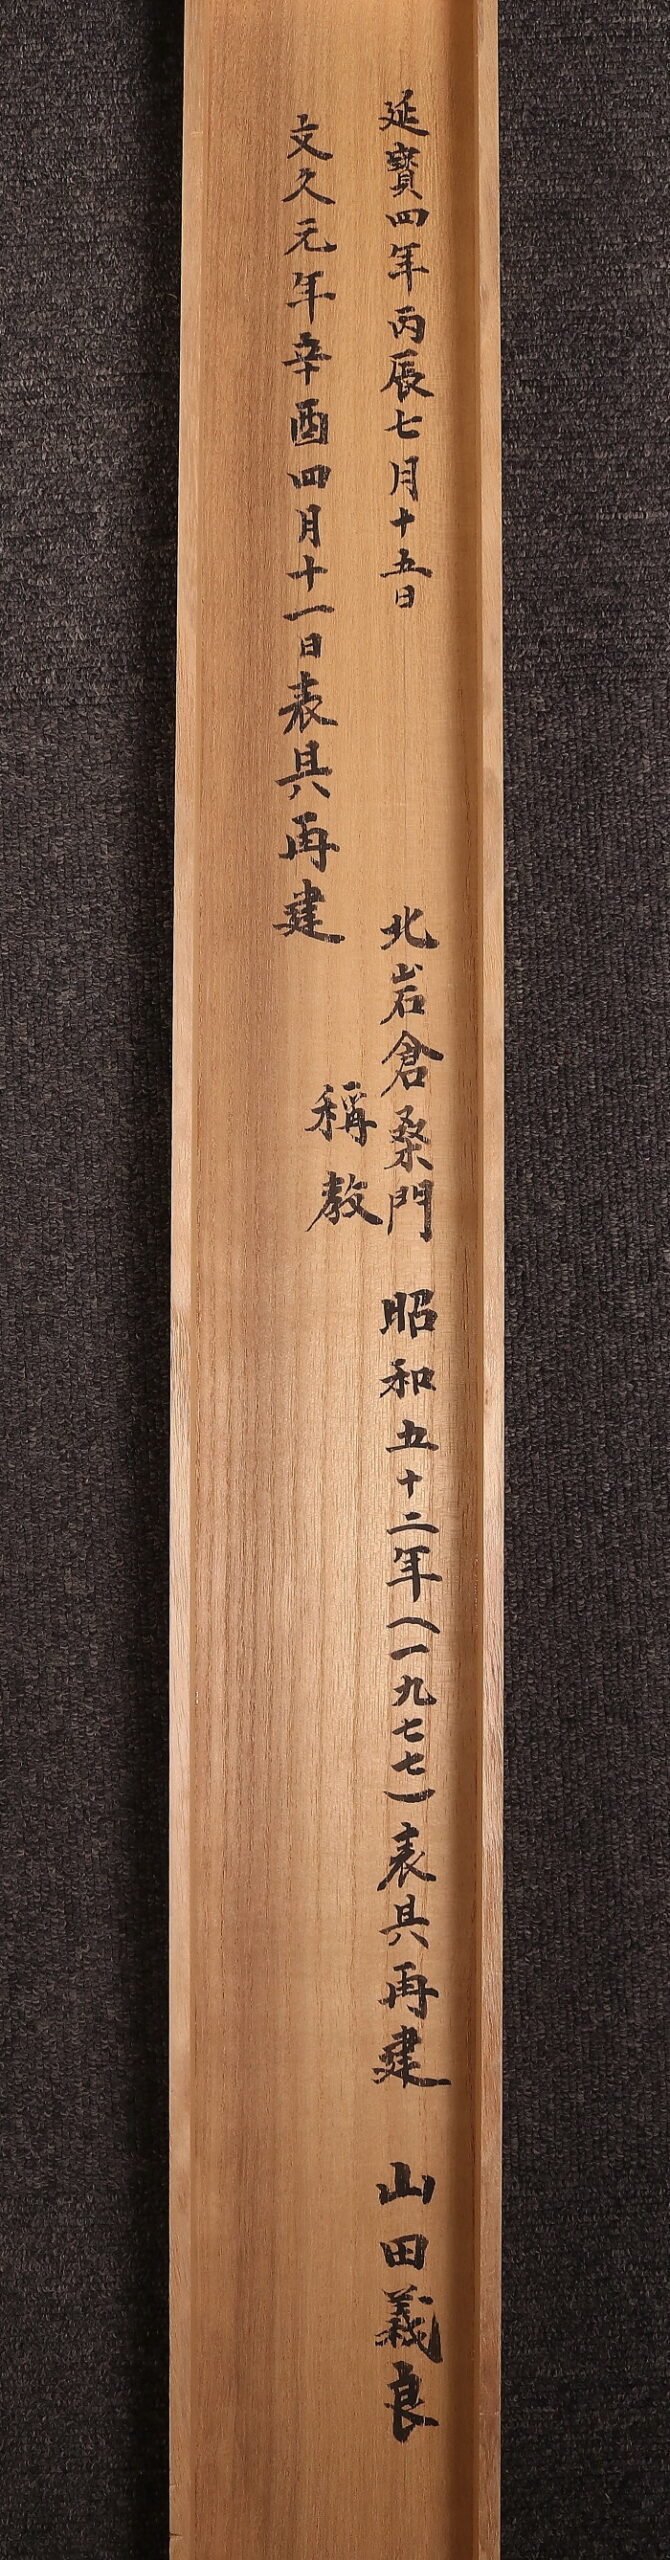 延寶四年丙辰七月十五日
文久元年辛酉四月十一日表具再建
北岩倉桑門
稱敎
昭和五十二年(一九七七)表具再建 山田義良